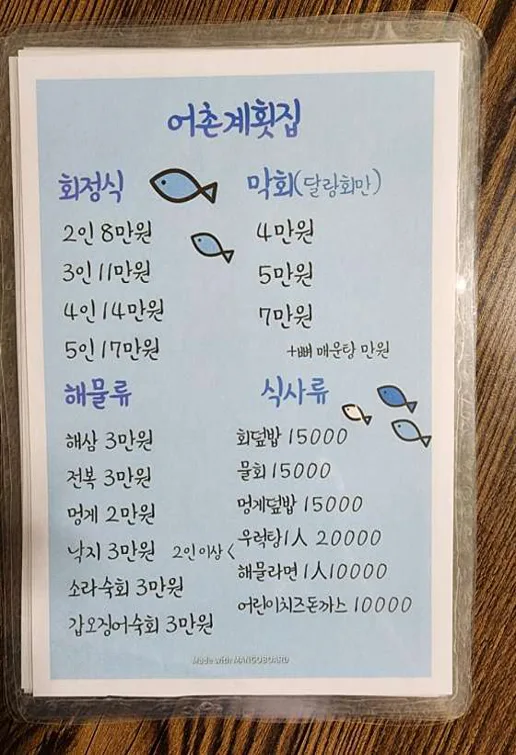 어촌계횟집
회정식
2인 8만원
3인 11만원
4인 14만원
5인 17만원
막회(달랑회만)
4만원
5만원
7만원
+뼈 매운탕 만원
해물류
해삼 3만원
전복 3만원
멍게 2만원
낙지 3만원
소라숙회 3만원
갑오징어숙회 3만원
식사류
회덮밥 15000
물회 15000
멍게덮밥 15000
2인이상 < 우럭탕1人 20000
해물라면 1人10000
어린이치즈돈까스 10000
Made with MANGOBOARD